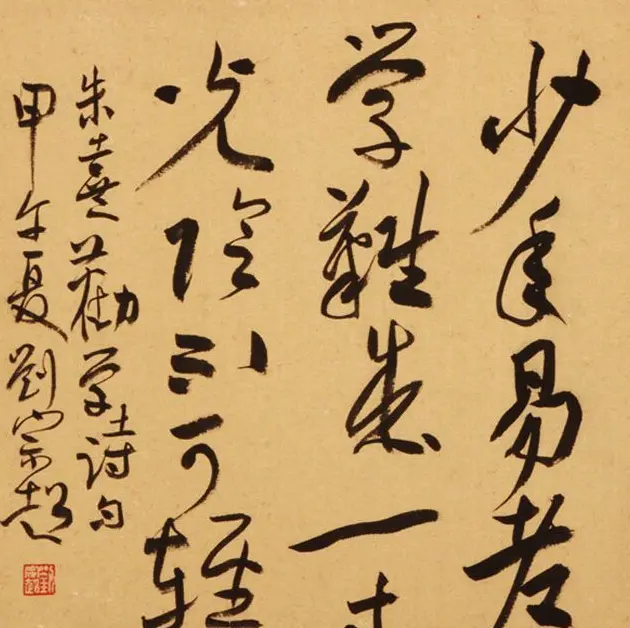 少年易老
学難成一寸
光陰不可輕
朱熹勸学詩句
甲午夏劉宗超